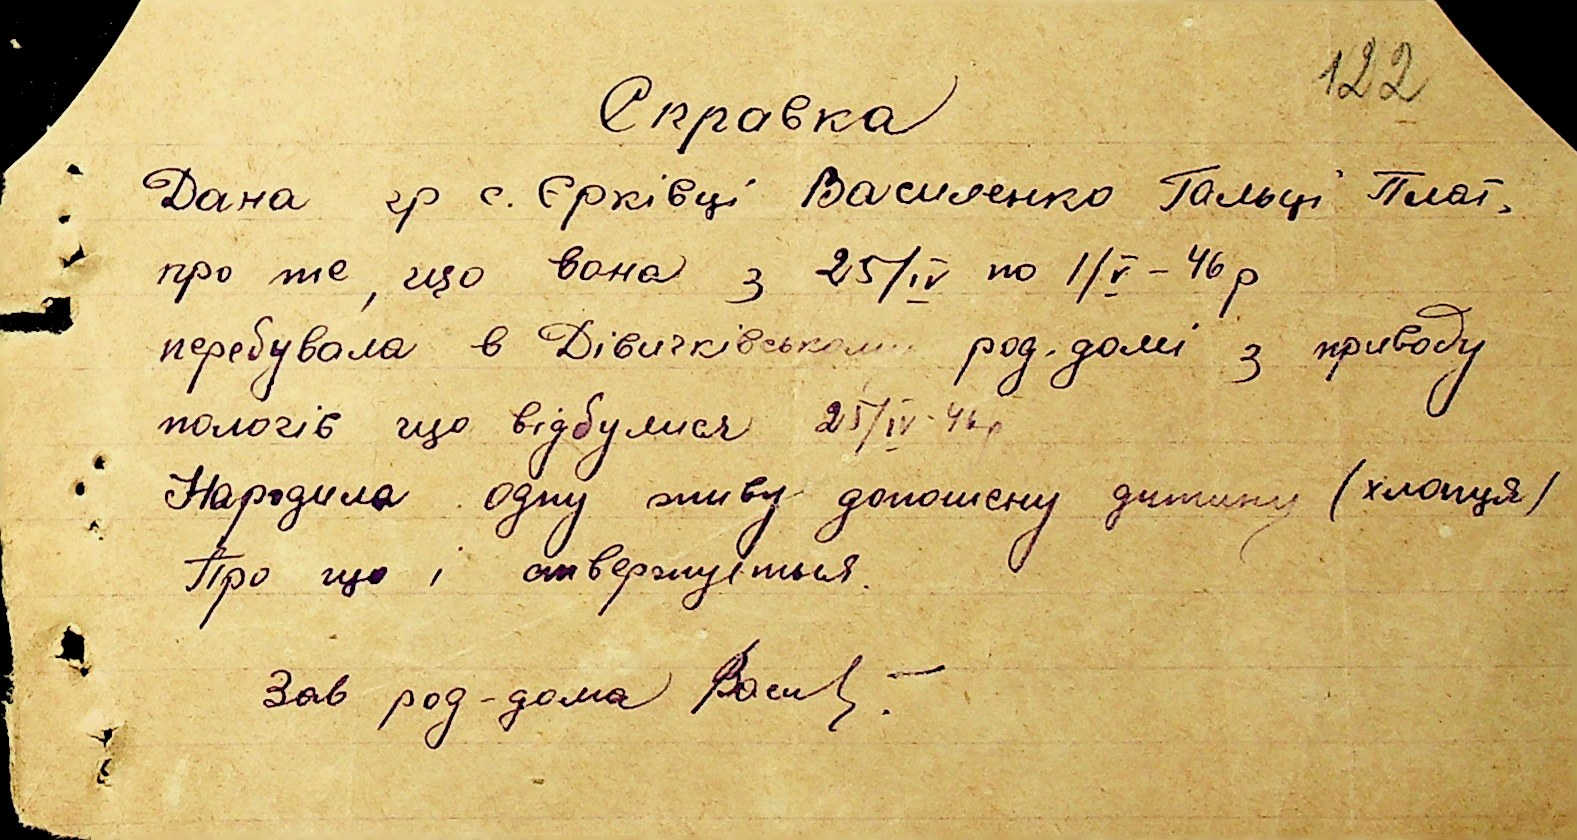 122
Справка
Дана гр с. Єрківці Василенко Гальці Плат.
про те, що вона з 25/IV по 1/V – 46 р
перебувала в Дівичківському род-домі з приводу
пологів що відбулися 25/IV-46р
Народила одну живу доношену дитину (хлопця)
Про що і ствержується.
Зав род-дома